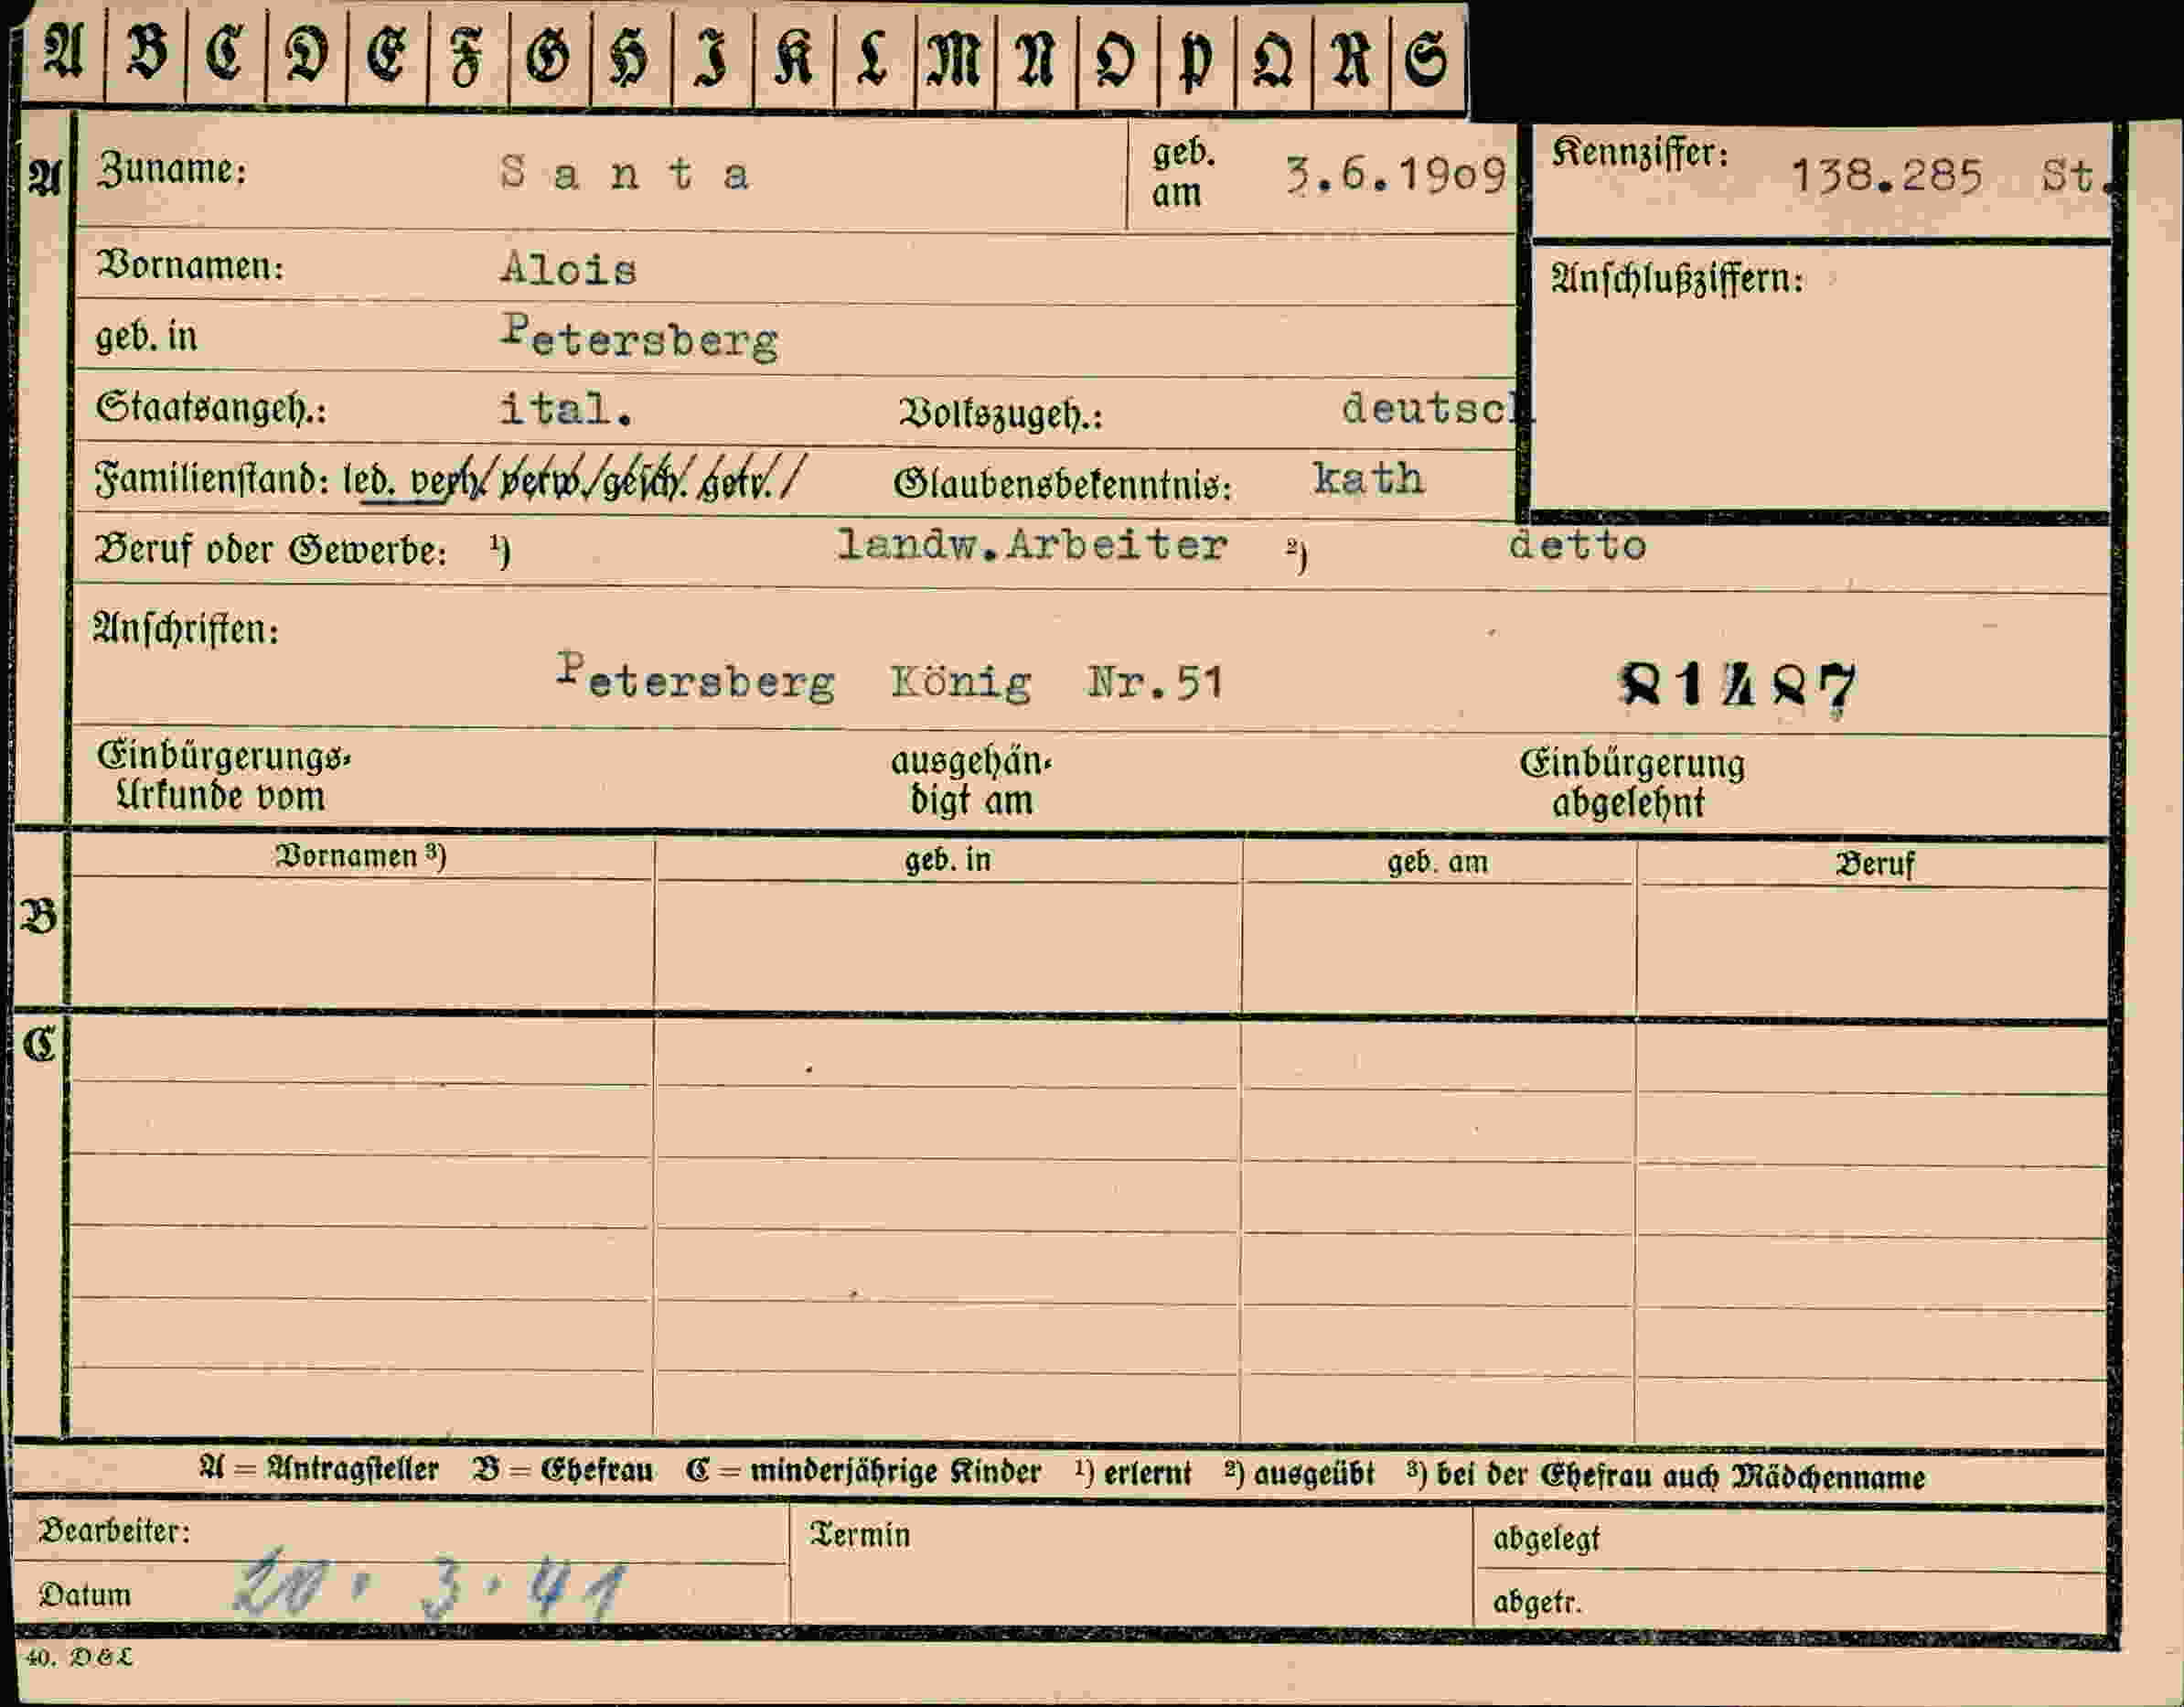 A B C D E F G H I K L M N O P Q R S
A Zuname: Santa geb. am 3.6.1909 Kennziffer: 138.285 St.
Vornamen: Alois Anschlußziffern:
geb. in Petersberg
Staatsangeh.: ital. Volkszugeh.: deutsch
Familienstand: led. verh. verw. gesch. getr. Glaubensbekenntnis: kath
Beruf oder Gewerbe: ¹) landw.Arbeiter ²) detto
Anschriften:
Petersberg König Nr.51 81487
Einbürgerungs- ausgehän- Einbürgerung
Urkunde vom digt am abgelehnt
Vornamen ³) geb. in geb. am Beruf
B
C
A = Antragsteller B = Ehefrau C = minderjährige Kinder ¹) erlernt ²) ausgeübt ³) bei der Ehefrau auch Mädchenname
Bearbeiter: Termin abgelegt
Datum 20. 3. 41 abgetr.
40. D & L